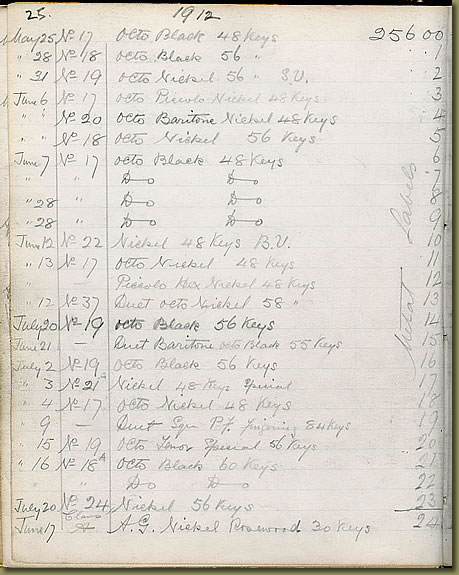 25. 1912
May 25 No 17 Octo Black 48 Keys 25600
" 28 No 18 Octo Black 56 " 1
" 31 No 19 Octo Nickel 56 " S.V. 2
June 6 No 17 Octo Piccolo Nickel 48 Keys 3
" " No 20 Octo Baritone Nickel 48 Keys 4
" No 18 Octo Nickel 56 Keys 5
June 7 No 17 Octo Black 48 Keys 6
" " Do Do 7
" 28 " Do Do 8
" 28 " Do Do 9
June 12 No 22 Nickel 48 Keys B.V. 10
" 13 No 17 Octo Nickel 48 Keys 11
" — Piccolo Nickel 48 Keys 12
" 12 No 37 Duet Octo Nickel 58 " 13
July 20 No 19 Octo Black 56 Keys 14
June 21 — Duet Baritone Octo Black 55 Keys 15
July 2 No 19 Octo Black 56 Keys 16
" 3 No 21 Nickel 48 Keys Special 17
" 4 No 17 Octo Nickel 48 Keys 18
" 9 — Duet Sqr P.F. Fingering 84 Keys 19
" 15 No 19 Octo Tenor Special 56 Keys 20
" 16 No 18A Octo Black 60 Keys 21
Do Do 22
July 20 No 24 Nickel 56 Keys 23
June 17 Class A. G. Nickel Rosewood 30 Keys 24
Without Labels